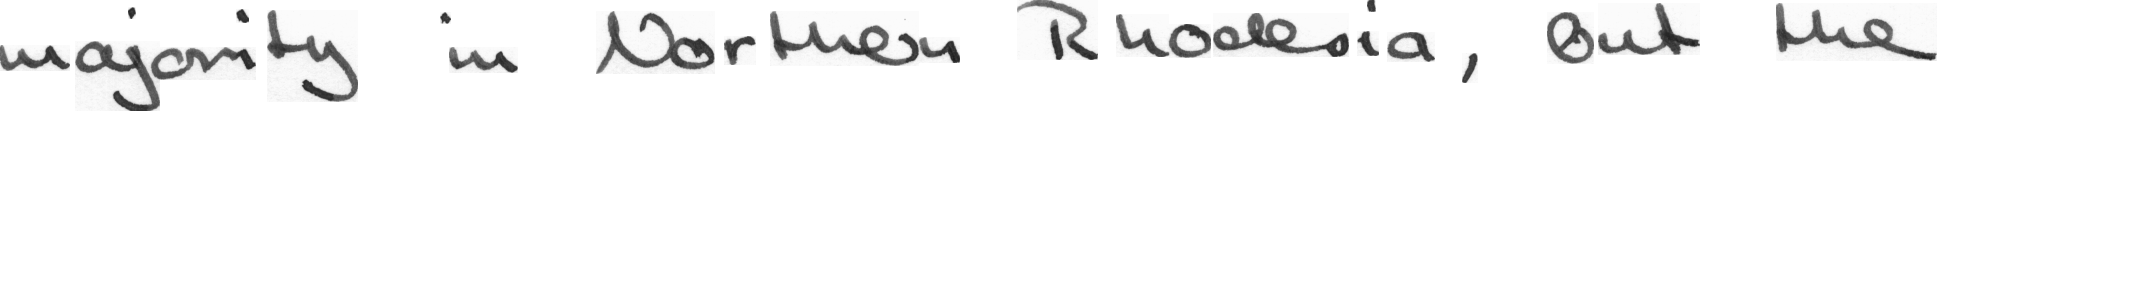 majority in Northern Rhodesia, but the